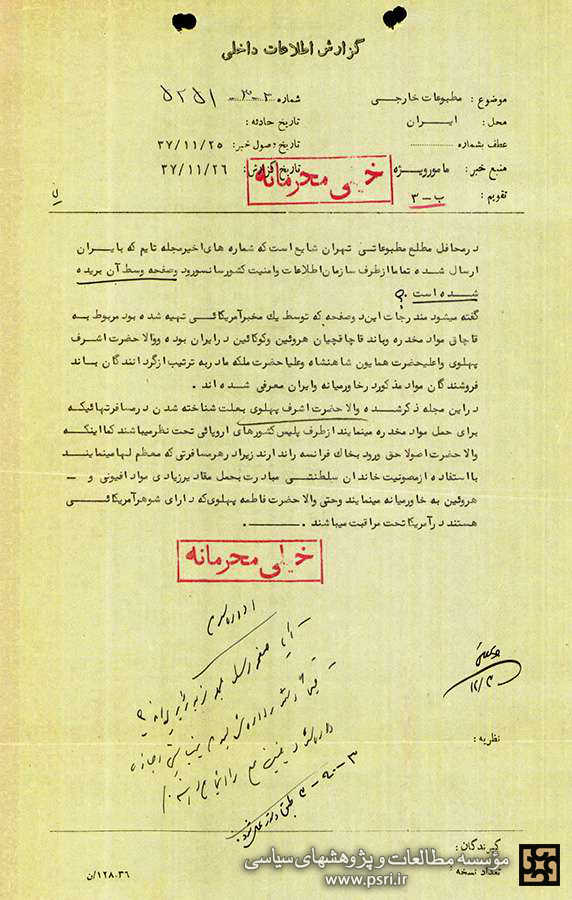 گزارش اطلاعات داخلی
موضوع : مطبوعات خارجی
شماره ۳۰۳
محل : ایران
تاریخ حادثه :
عطف بشماره
تاریخ وصول خبر : ۳۷/۱۱/۲۵
منبع خبر : مامورویژه
تاریخ گزارش : ۳۷/۱۱/۲۶
تقویم : ب-۳
خیلی محرمانه
درمحافل مطلع مطبوعاتی تهران شایع است که شماره های اخیرمجله تایم که بایران
ارسال شده تماما ازطرف سازمان اطلاعات وامنیت کشورسانسورود وصفحه وسط آن بریده
شده است .
گفته میشود مندرجات این دوصفحه که توسط یك مخبرآمریکائی تهیه شده بود مربوط به
قاچاق مواد مخدره وباند قاچاقچیان هروئین وکوکائین درایران بوده ووالاحضرت اشرف
پهلوی واعلیحضرت همایون شاهنشاه وعلیاحضرت ملکه مادر به ترتیب ازگردانندگان باند
فروشندگان مواد مذکوردرخاورمیانه وایران معرفی شده اند .
دراین مجله ذکرشده والاحضرت اشرف پهلوی بعلت شناخته شدن درمسافرتهائیکه
برای حمل مواد مخدره مینمایند ازطرف پلیس کشورهای اروپائی تحت نظرمیباشند کما اینکه
والاحضرت اصولا حق ورود بخاك فرانسه راندارند زیرادرهرمسافرتی که معظم لها مینمایند
بااستفاده ازمصونیت خاندان سلطنتی مبادرت بحمل مقادیرزیادی مواد افیونی و -
هروئین به خاورمیانه مینمایند وحتی والاحضرت فاطمه پهلوی که دارای شوهرآمریکائی
هستند درآمریکا تحت مراقبت میباشند .
خیلی محرمانه
نظریه :
گیرندگان :
تعداد نسخه
۱۲۸۰۳۶/ن
مؤسسه مطالعات و پژوهشهای سیاسی
www.psri.ir